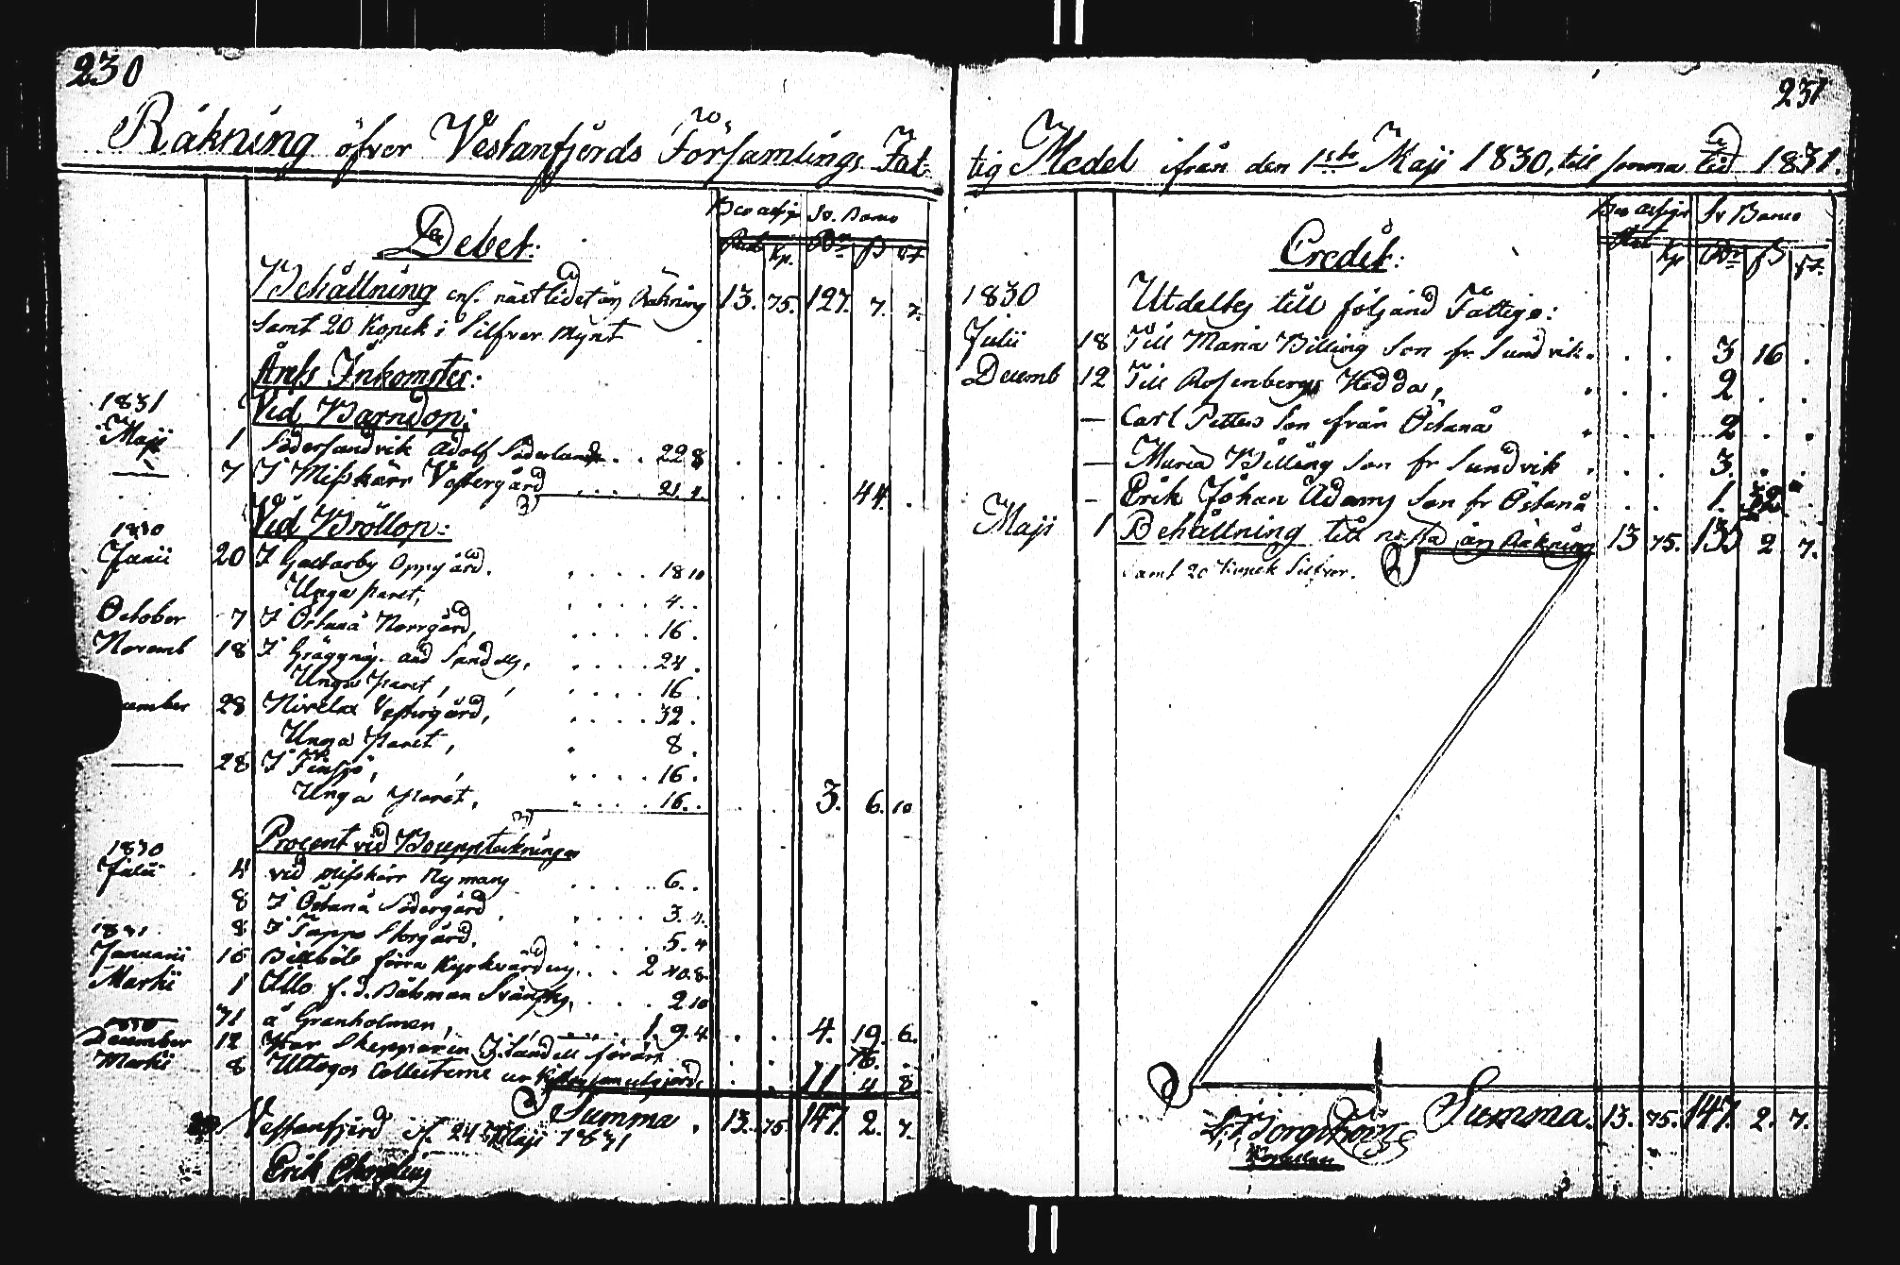 230
Räkning öfver Vestanfjerds Församlings Fat-
Debet:
Bco assign Sv. Banco
Rub Kp. Rdr ß rst
Behållning enl. nästledet års Räkning 13. 75. 127. 7. 7.
samt 20 Kopek i Silfver mynt
Årets Inkomster:
1831 Vid Barndop:
Maji 1 Södersundvik Adolf Söderlund . . 22 8
— 7 I Misskärr Västergård . . . . 21. 4. 44.
1830 Vid Bröllop:
Junii 20 I Galtarby Oppgård. . . . . 18 10
Unga paret, . . . . 4. .
October 7 I Östanå Norrgård, . . . . 16.
Novemb 18 I Gräggnäs . . . . 24.
Unga Paret, . . . . 16.
cember 28 Nivelax Västergård, . . . . 32.
Unga Paret, . 8.
— 28 I . . . . 16.
Unga Paret, . . . . 16. . 3. 6. 10
1830 Procent vid Bouppteckningar
Julii 4 vid Misskärr Nymans . . . . 6. .
8 I Östanå Södergård . . . . 3. 4.
1831 8 I Tappo Storgård. . . . . 5. 4
Januarii 16 Billböle förra Kyrkvärdens . . . 2 40. 8.
Martii 1 Illo f. d. Båtsman . . . . 2 10
31 å Granholmen, . . . . 1. 9. 4 4. 19. 6.
1830
December 12 Har Skepparen J. Sandell förärt 16.
Martii 8 Uttogos Collecterne ur 11 4 8
Summa . 13. 75 147. 2. 7.
Vestanfjerd d. 24 Maji 1831
Erik
231
tig Medel ifrån den 1sta Maji 1830, till samma tid 1831.
Credit:
Bco assign Sv Banco
Rub Kp Rdr ß rst
1830 Utdeltes till följand Fattige:
Julii 18 Till Maria Billing Son fr. Sundvik . . . 3 16 .
Decemb 12 Till Rosenbergs Hedda, . . . 2 . .
— Carl Petters Son från Östanå . . . 2 . .
— Maria Billing Son fr Sundvik . . . 3. . .
— Erik Johan Adams Son fr Östanå . . 1. 32 .
Maji 1 Behållning till nästa års Räkning 13 75. 135 2 7.
samt 20 Kopek Silfver.
Summa. 13. 75. 147. 2. 7.